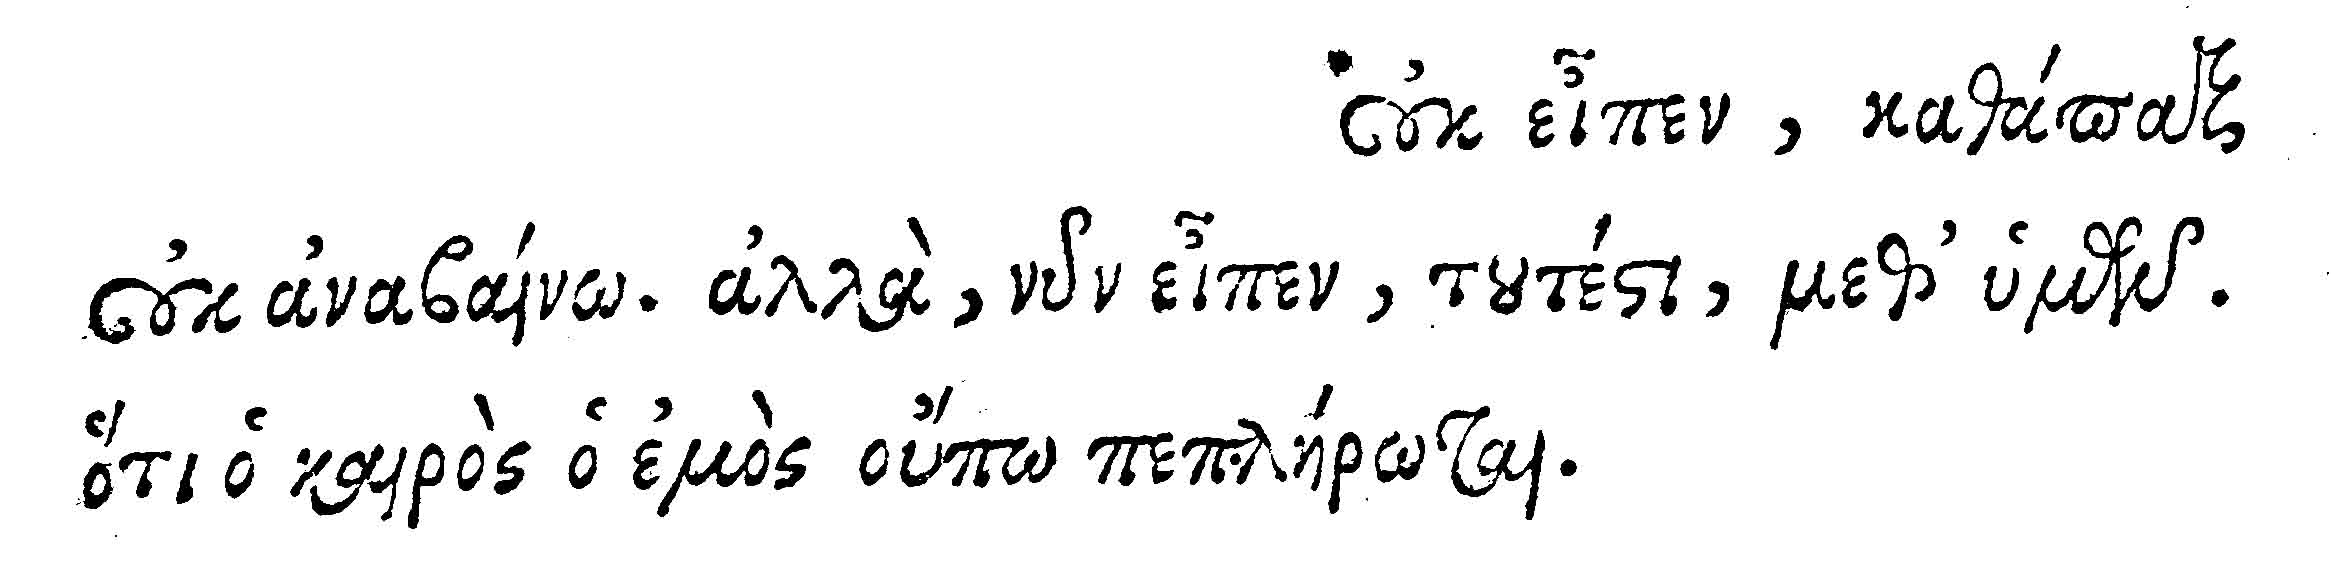 οὐκ εἶπεν, καθάπαξ
οὐκ ἀναβαίνω. ἀλλὰ, νῦν εἶπεν, τουτέστι, μεθ' ὑμῶν.
ὅτι ὁ καιρὸς ὁ ἐμὸς οὔπω πεπλήρωται.